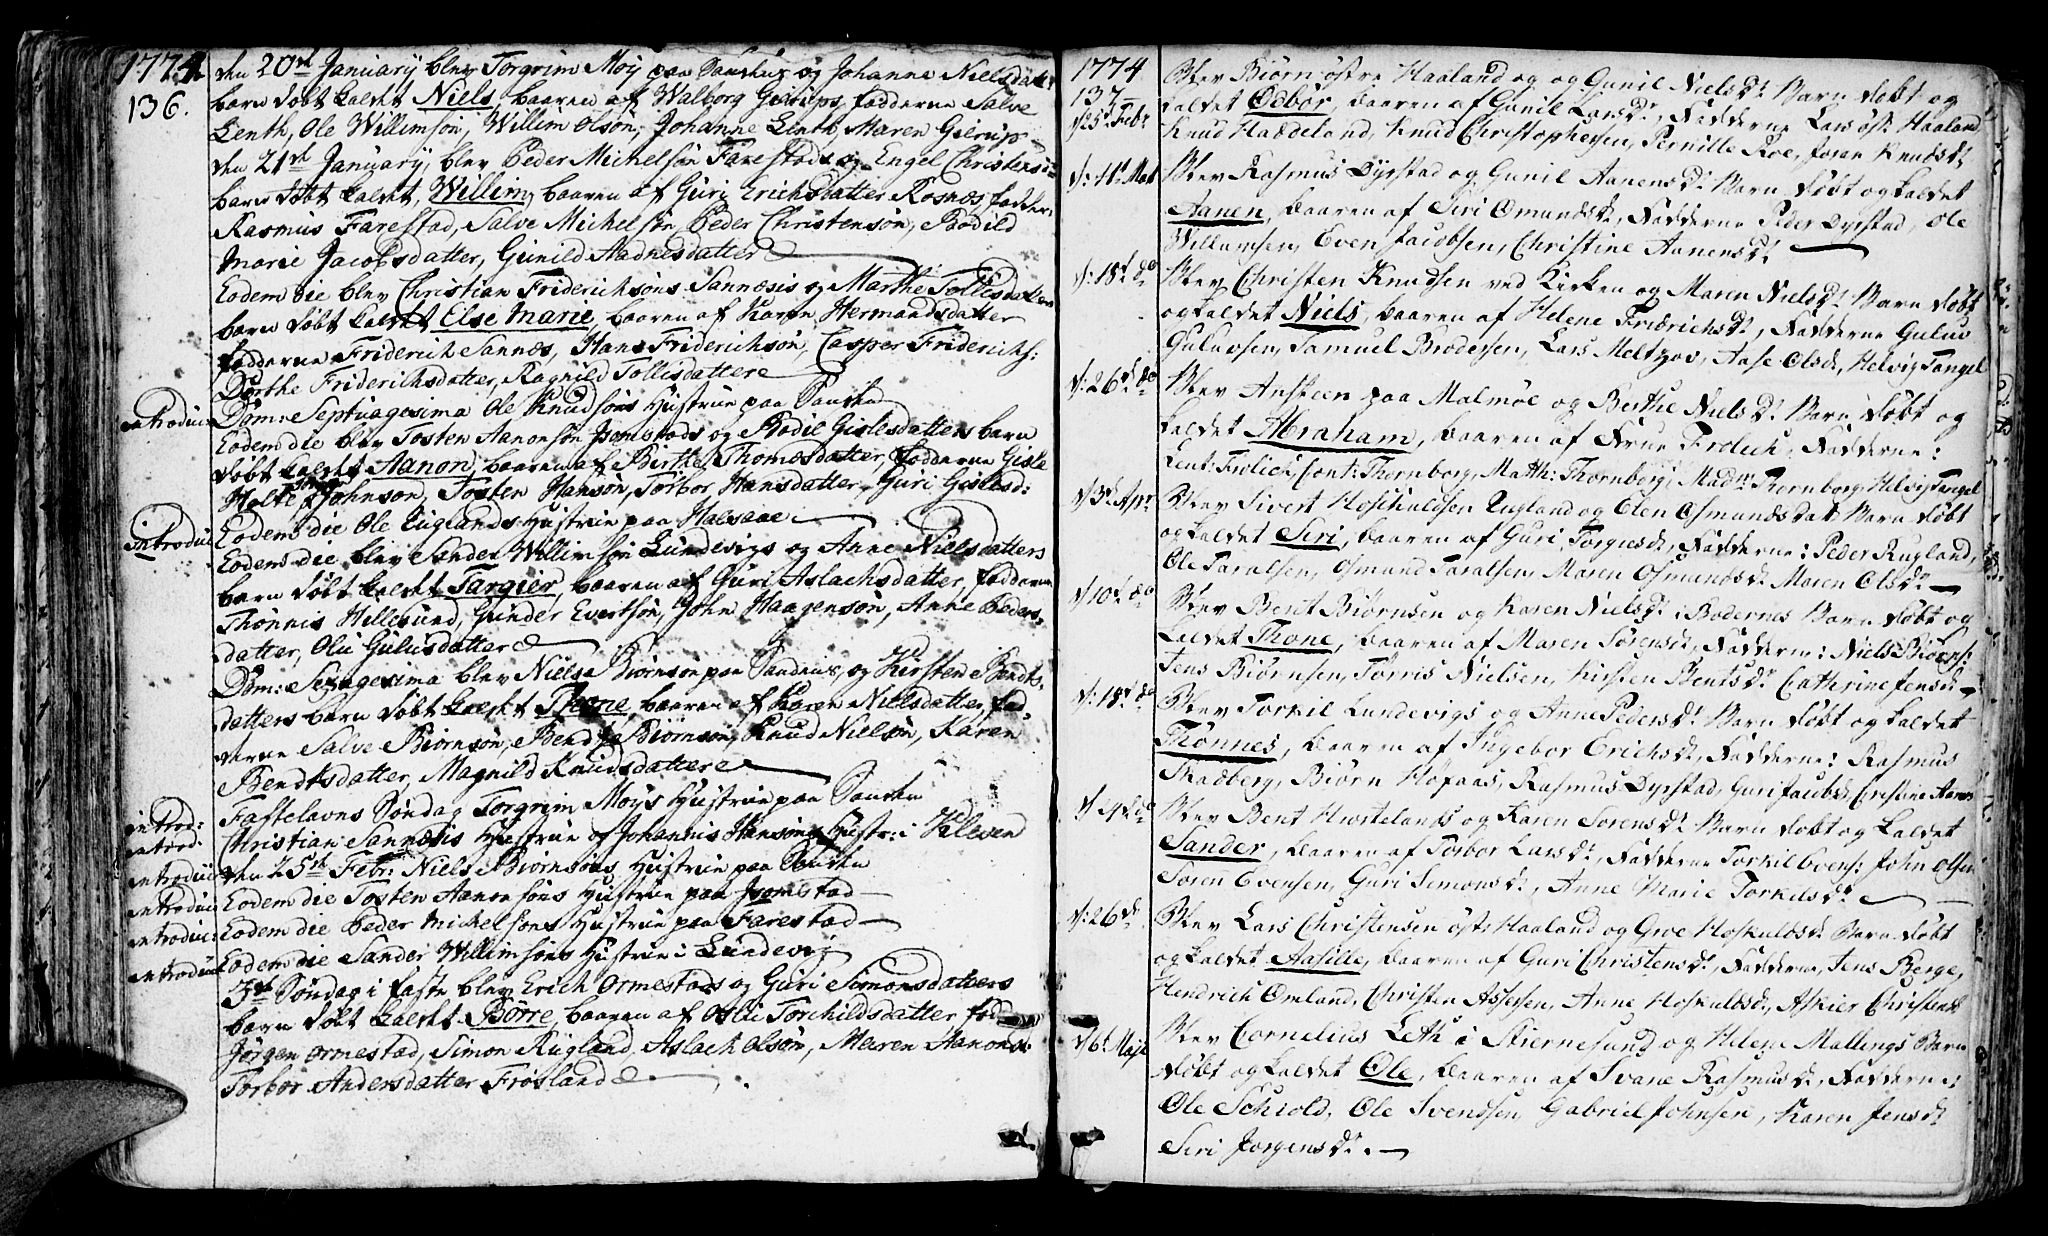 1774.
136.
den 20de January blev Torgrim Moy paa og Johanne Nielsdatters
barn döbt kaldet Niels, baaren af Walborg Gierups, fadderne Salve
Lenth, Ole Willimsön, Willim Olsön, Johanne Lenth, Maren Gierup
den 21de January, blev Peder Michelsön Farestads og Engel Christens
barn döbt kaldet, Willim, baaren af Guri Erichsdatter Rosnæs fadder:
Rasmus Farestad, Salve Michelsön, Peder Christensön, Bodild
Marie Jacobsdatter, Gunild Aadnesdatter
Eodem die blev Christian Friderichsöns Sannæsis og Marthe Tollisdatters
barn döbt kaldet Else Marie, baaren af Karen Hermandsdatter
fadderne Friderich Sannæs, Hans Friderichsön, Casper Friderichs:
Dorthe Friderichsdatter, Ragnild Tollisdatter
introduc: Dom: Septuagesima Ole Knudsöns Hustrue paa
Eodem die blev Tosten Aanonsön Jvemstads og Bodil Gislesdatters barn
döbt kaldet Aanon, baaren af Birthe Thomæsdatter, fadderne Gisle
Holte, Johnson, Tosten Hansön, Torbor Hansdatter, Guri Gislesd:
introduc: Eodem die Ole Ruglands Hustrue paa Halsaae
Eodem die blev Sander Willimsön Lundevigs og Anne Nielsdatters
barn döbt kaldet Targier, baaren af Guri Aslachsdatter, fadderne
Thönnis Hillesund, Gunder Evertsön, John Haagensön, Anne Peders-
datter, Olu Gulusdatter
Dom: Sexagesima blev Niels Biörnsön paa og Kirsten Bendts-
datters barn döbt kaldet Thone, baaren af Karen Nielsdatter, fad-
derne Salve Biörnsön, Bend Biörnsön, Knud Nielsön, Karen
Bendtsdatter, Magnild Knudsdatter
introd: Fastelavns Söndag Torgrim Moys Hustrue paa
introd: Christian Sannæsis Hustrue og Johannis Hansöns Hustr: i Kleven
introduc den 25de Febr: Niels Biörnsöns Hustrue paa
introduc Eodem die Tosten Aanonsöns Hustrue paa Jvemstad
introduc: Eodem die Peder Michelsöns Hustrue paa Farestad
introduc Eodem die Sander Willimsöns Hustrue i Lundevig
3de Söndag i faste blev Erich Ormestads og Guri Simonsdatters
barn döbt kaldet Börre, baaren af Olu Torchildsdatter, fadd
Jörgen Ormestad, Simon Rugland, Aslach Olsön, Maren Aanons:
Torbor Andersdatter Frösland
1774
137
d 25 Febr Blev Biörn östre Haaland og og Gunil Niels Dr Barn döbt og
kaldet Ödbör, baaren af Gunil Lars Dr, Fadderne Lars öst: Haaland
Knud Haddeland, Knud Christophersen, Pernille Roe, Joran Knuds Dr
d: 11t Mart Blev Rasmus Dyrstad og Gunil Aanens Dr Barn döbt og kaldet
Aanen, baaren af Siri Omunds Dr, Fadderne Peder Dyrstad, Ole
Willumsen, Even Jacobsen, Christine Aanens Dr
d: 18t do Blev Christen Knudsen ved Kirken og Maren Niels Dr Barn döbt
og kaldet Niels, baaren af Helene Fridrichs Dr, Fadderne Guluv
Guluvsen, Samuel Brodersen, Lars Meltzov, Aase Ols Dr, Helvig Tangel
d: 26de do Blev Ansteen paa Malmöe og Berthe Niels Dr Barn döbt og
kaldet Abraham, baaren af Frue Frolich, Fadderne:
Leut: Frolich, Cont: Thornborg, Matth: Thornborg, Madme Thornborg, Helvig Tangel
d 3de Apr Blev Sivert Hoskuldsen Rugland og Elen Osmunds datt Barn döbt
og kaldet Siri, baaren af Guri Torgius Dr, Fadderne: Peder Rugland,
Ole Taralsen, Osmund Taralsen, Maren Osmunds Dr Maren Ols Dr
d 10t do Blev Bent Biörnsen og Karen Niels Dr: Bodernes Barn döbt og
kaldet Thone, baaren af Maren Sörens Dr, Fadderne: Niels Biörns:
Jens Biörnsen, Torris Nielsen, Kirsten Bents Dr Cathrine Jens Dr
d: 18t do Blev Torkil Lundevigs og Anne Peders Dr Barn döbt og kaldet
Thönnes, baaren af Ingebor Erichs Dr, Fadderne: Rasmus
Skadberg, Biörn Höfaas, Rasmus Dyrstad, Guri Jacobs Dr, Christine Aanens
d 24de do Blev Bent Hvistelands og Karen Sorens Dr Barn döbt og kaldet
Sander, baaren af Torbor Lars Dr, Fadderne Torkil Evens: John Olsen
Sören Evensen, Guri Semons Dr, Anne Marie Torkils Dr
d: 26de Blev Lars Christensen öst: Haaland og Groe Hoskulds Dr Barn döbt
og kaldet Aasille, baaren af Guri Christens Dr, Fadderne, Jens Berge,
Hendrich Omland, Christen Assersen, Anne Hoskulds Dr, Askier Christens Dr
d 6t Maji Blev Cornelius Leth i Skiernesund og Helene Mallings Barn
döbt og kaldet Ole, baaren af Svane Rasmus Dr, Fadderne:
Ole Schiold, Ole Svendsen, Gabriel Johnsen, Karen Jens Dr
Siri Jorgens Dr.